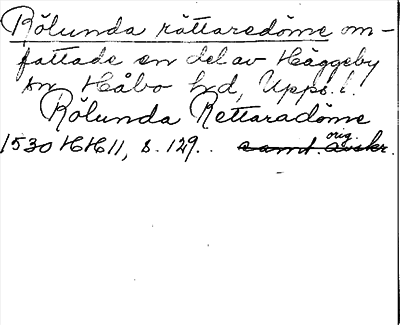 Rölunda rättaredöme om-
fattade en del av Häggeby
sn Håbo hd, Upps. l.
Rölunda Rettaradöme
1530 HH 11, s. 129. samt. orig. avskr.